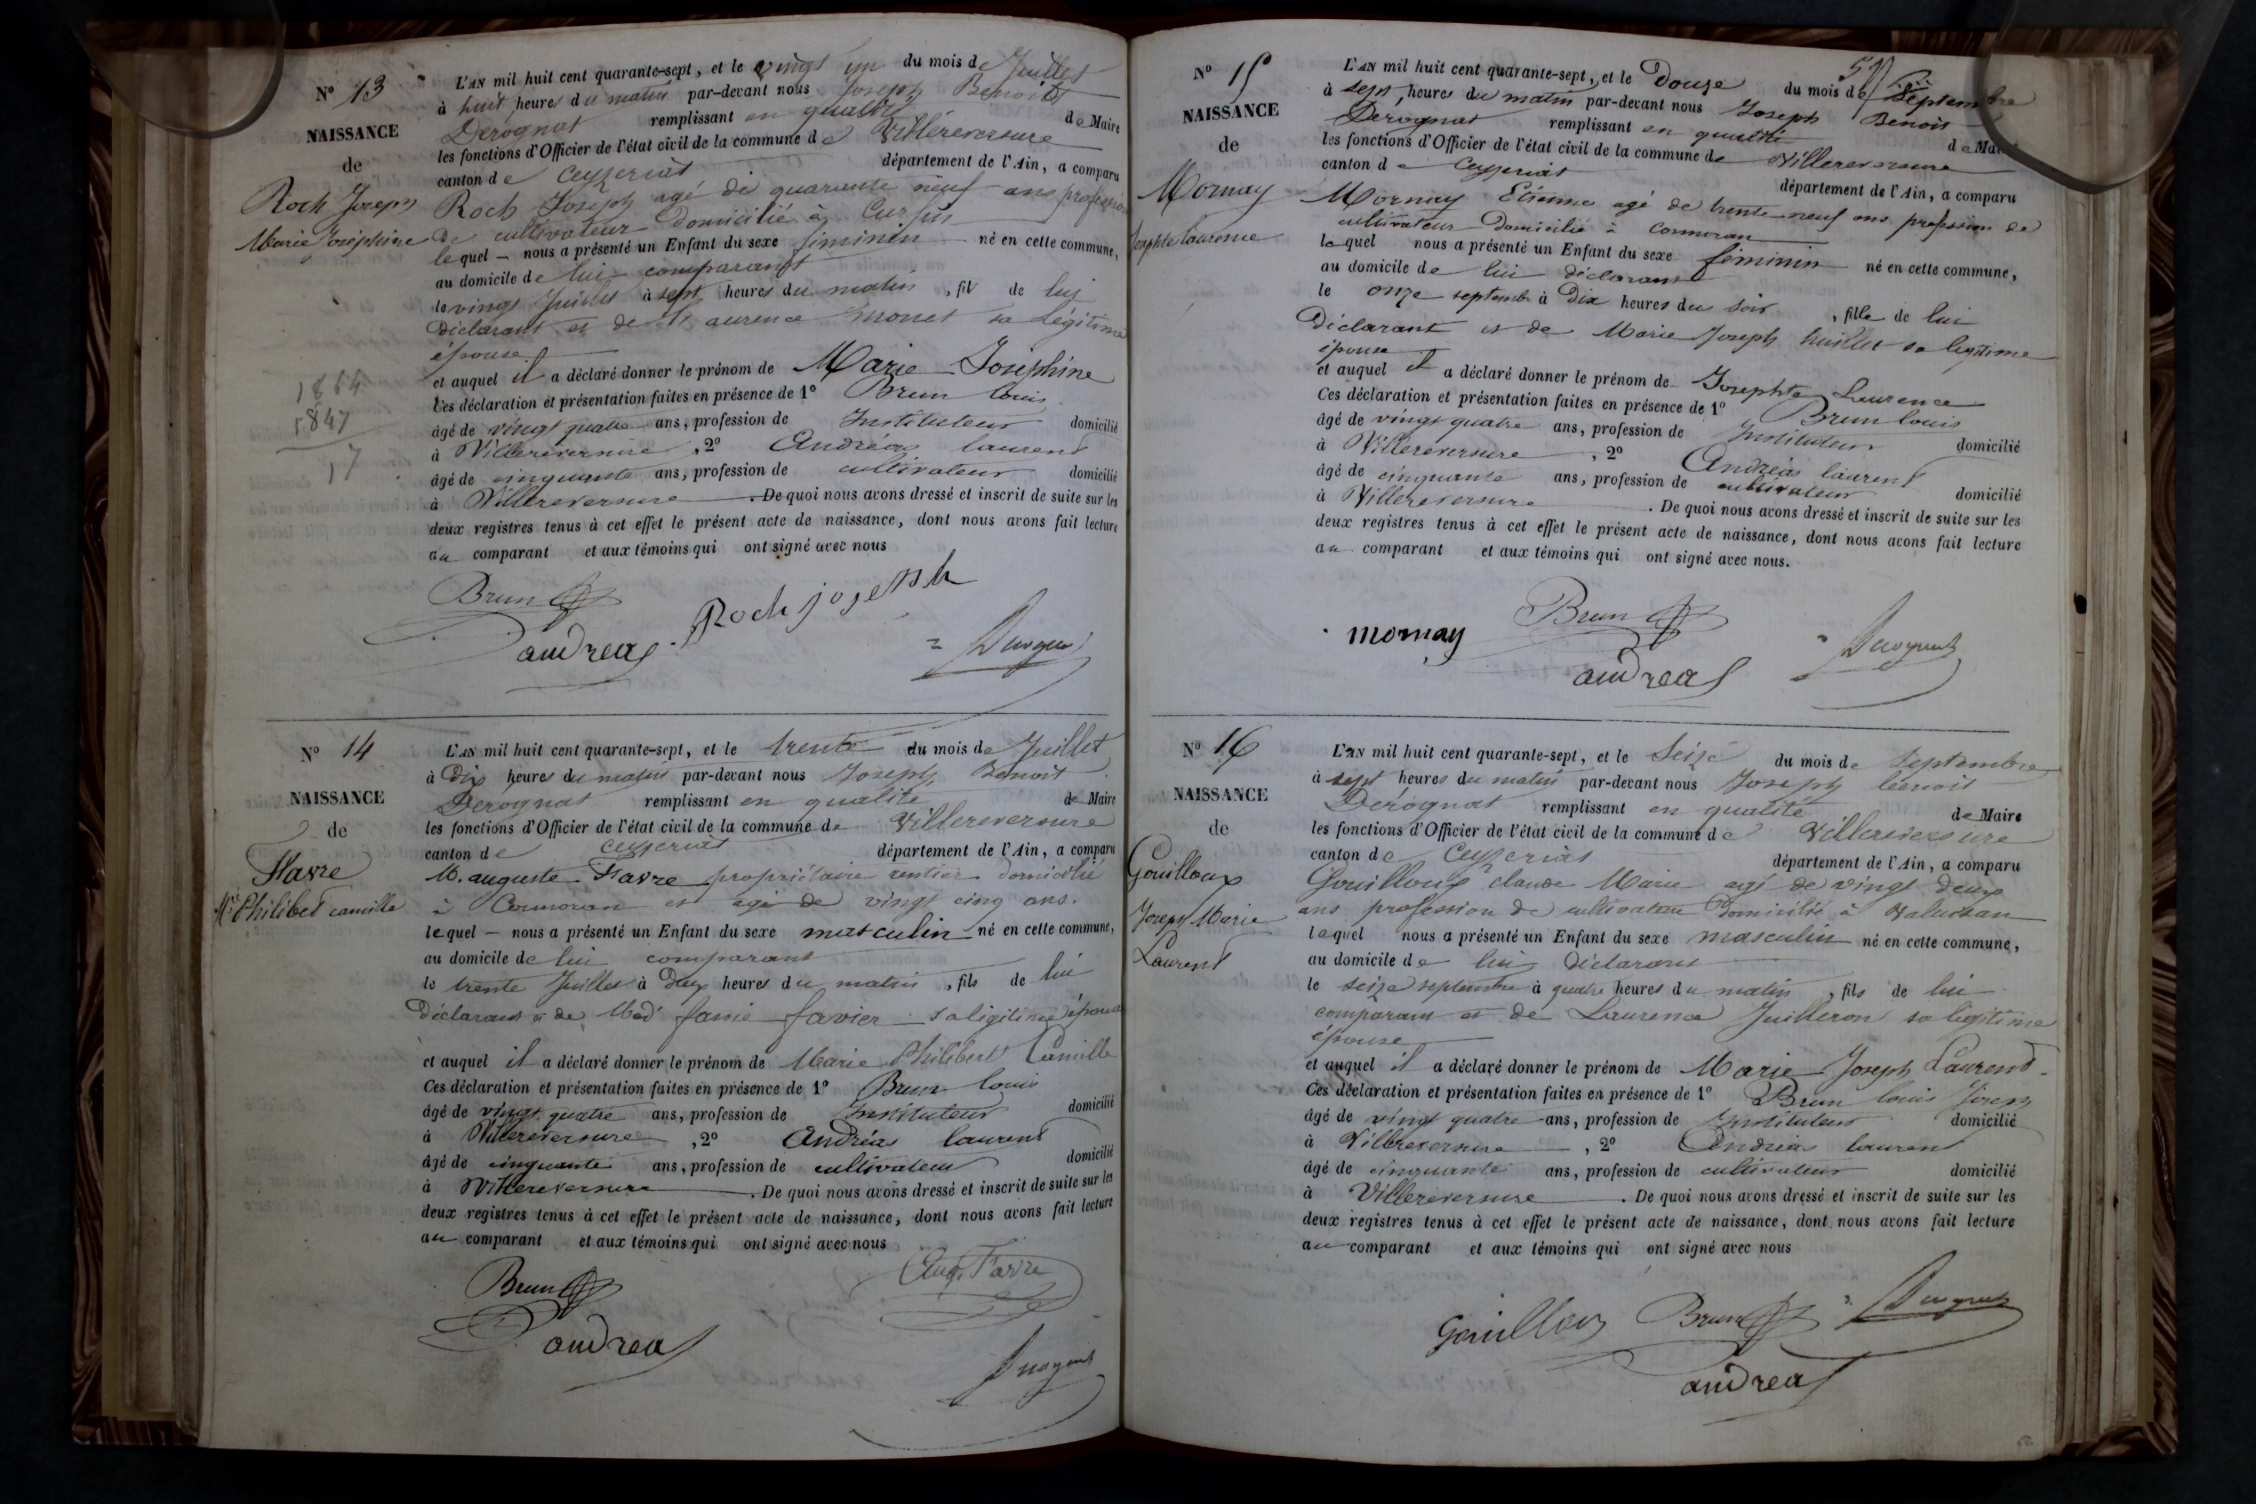 N° 13
NAISSANCE
de
Roch Joseph
Marie Joséphine
1864
1847
17
L'AN mil huit cent quarante-sept, et le vingt un du mois de Juillet
à huit heures du matin par-devant nous Joseph Benoit
Derognat remplissant en qualité de Maire
les fonctions d'Officier de l'état civil de la commune de Villereversure
canton de Ceyzeriat département de l'Ain, a comparu
Roch Joseph agé de quarante neuf ans profession
de cultivateur domicilié à
lequel nous a présenté un Enfant du sexe féminin né en cette commune,
au domicile de lui comparant
le vingt Juillet à sept heures du matin, fil de lui
déclarant et de Laurence Monet sa légitime
épouse
et auquel il a déclaré donner le prénom de Marie Joséphine
Ces déclaration et présentation faites en présence de 1° Brun Louis
âgé de vingt quatre ans, profession de Instituteur domicilié
à Villereversure, 2° Andréas laurent
âgé de cinquante ans, profession de cultivateur domicilié
à Villereversure. De quoi nous avons dressé et inscrit de suite sur les
deux registres tenus à cet effet le présent acte de naissance, dont nous avons fait lecture
au comparant et aux témoins qui ont signé avec nous
Brun
Roch joseph
andreas
Derognat
N° 14
NAISSANCE
de
Favre
Mie Philibet camille
L'AN mil huit cent quarante-sept, et le trente du mois de Juillet
à dix heures du matin par-devant nous Joseph Benoit
Derognat remplissant en qualité de Maire
les fonctions d'Officier de l'état civil de la commune de Villereversure
canton de Ceyzeriat département de l'Ain, a comparu
M. auguste Favre propriétaire rentier domicilié
à Cormoran et agé de vingt cinq ans.
lequel nous a présenté un Enfant du sexe masculin né en cette commune,
au domicile de lui comparant
le trente Juillet à deux heures du matin, fils de lui
déclarant & de Mad. fanie favier sa légitime épouse
et auquel il a déclaré donner le prénom de Marie Philibert Camille
Ces déclaration et présentation faites en présence de 1° Brun louis
âgé de vingt quatre ans, profession de Instituteur domicilié
à Villereversure, 2° Andréas laurent
âgé de cinquante ans, profession de cultivateur domicilié
à Villereversure. De quoi nous avons dressé et inscrit de suite sur les
deux registres tenus à cet effet le présent acte de naissance, dont nous avons fait lecture
au comparant et aux témoins qui ont signé avec nous
Brun
Aug. Favre
andreas
Derognat
N° 15
NAISSANCE
de
Mornay
Josephte Laurence
L'AN mil huit cent quarante-sept, et le Douze du mois de Septembre
à sept heures du matin par-devant nous Joseph Benoit
Derognat remplissant en qualité de Maire
les fonctions d'Officier de l'état civil de la commune de Villereversure
canton de Ceyzeriat département de l'Ain, a comparu
Mornay Etienne agé de trente neuf ans profession de
cultivateur domicilié à Cormoran
lequel nous a présenté un Enfant du sexe féminin né en cette commune,
au domicile de lui déclarant
le onze septembre à Dix heures du soir, fille de lui
Déclarant et de Marie Joseph huillet sa légitime
épouse
et auquel il a déclaré donner le prénom de Josephte Laurence
Ces déclaration et présentation faites en présence de 1° Brun louis
âgé de vingt quatre ans, profession de Instituteur domicilié
à Villereversure, 2° Andréas laurent
âgé de cinquante ans, profession de cultivateur domicilié
à Villereversure. De quoi nous avons dressé et inscrit de suite sur les
deux registres tenus à cet effet le présent acte de naissance, dont nous avons fait lecture
au comparant et aux témoins qui ont signé avec nous.
Brun
mornay
andreas
Derognat
N° 16
NAISSANCE
de
Gouilloux
Joseph Marie
Laurent
L'AN mil huit cent quarante-sept, et le Seize du mois de Septembre
à sept heures du matin par-devant nous Joseph benoit
Derognat remplissant en qualité de Maire
les fonctions d'Officier de l'état civil de la commune de Villereversure
canton de Ceyzeriat département de l'Ain, a comparu
Gouilloux claude Marie agé de vingt deux
ans profession de cultivateur domicilié à
lequel nous a présenté un Enfant du sexe masculin né en cette commune,
au domicile de lui déclarant
le seize septembre à quatre heures du matin, fils de lui
comparant et de Laurence Juilleron sa légitime
épouse
et auquel il a déclaré donner le prénom de Marie Joseph Laurent
Ces déclaration et présentation faites en présence de 1° Brun louis
âgé de vingt quatre ans, profession de Instituteur domicilié
à Villereversure, 2° Andréas laurent
âgé de cinquante ans, profession de cultivateur domicilié
à Villereversure. De quoi nous avons dressé et inscrit de suite sur les
deux registres tenus à cet effet le présent acte de naissance, dont nous avons fait lecture
au comparant et aux témoins qui ont signé avec nous
Gouilloux
Brun
Derognat
andreas